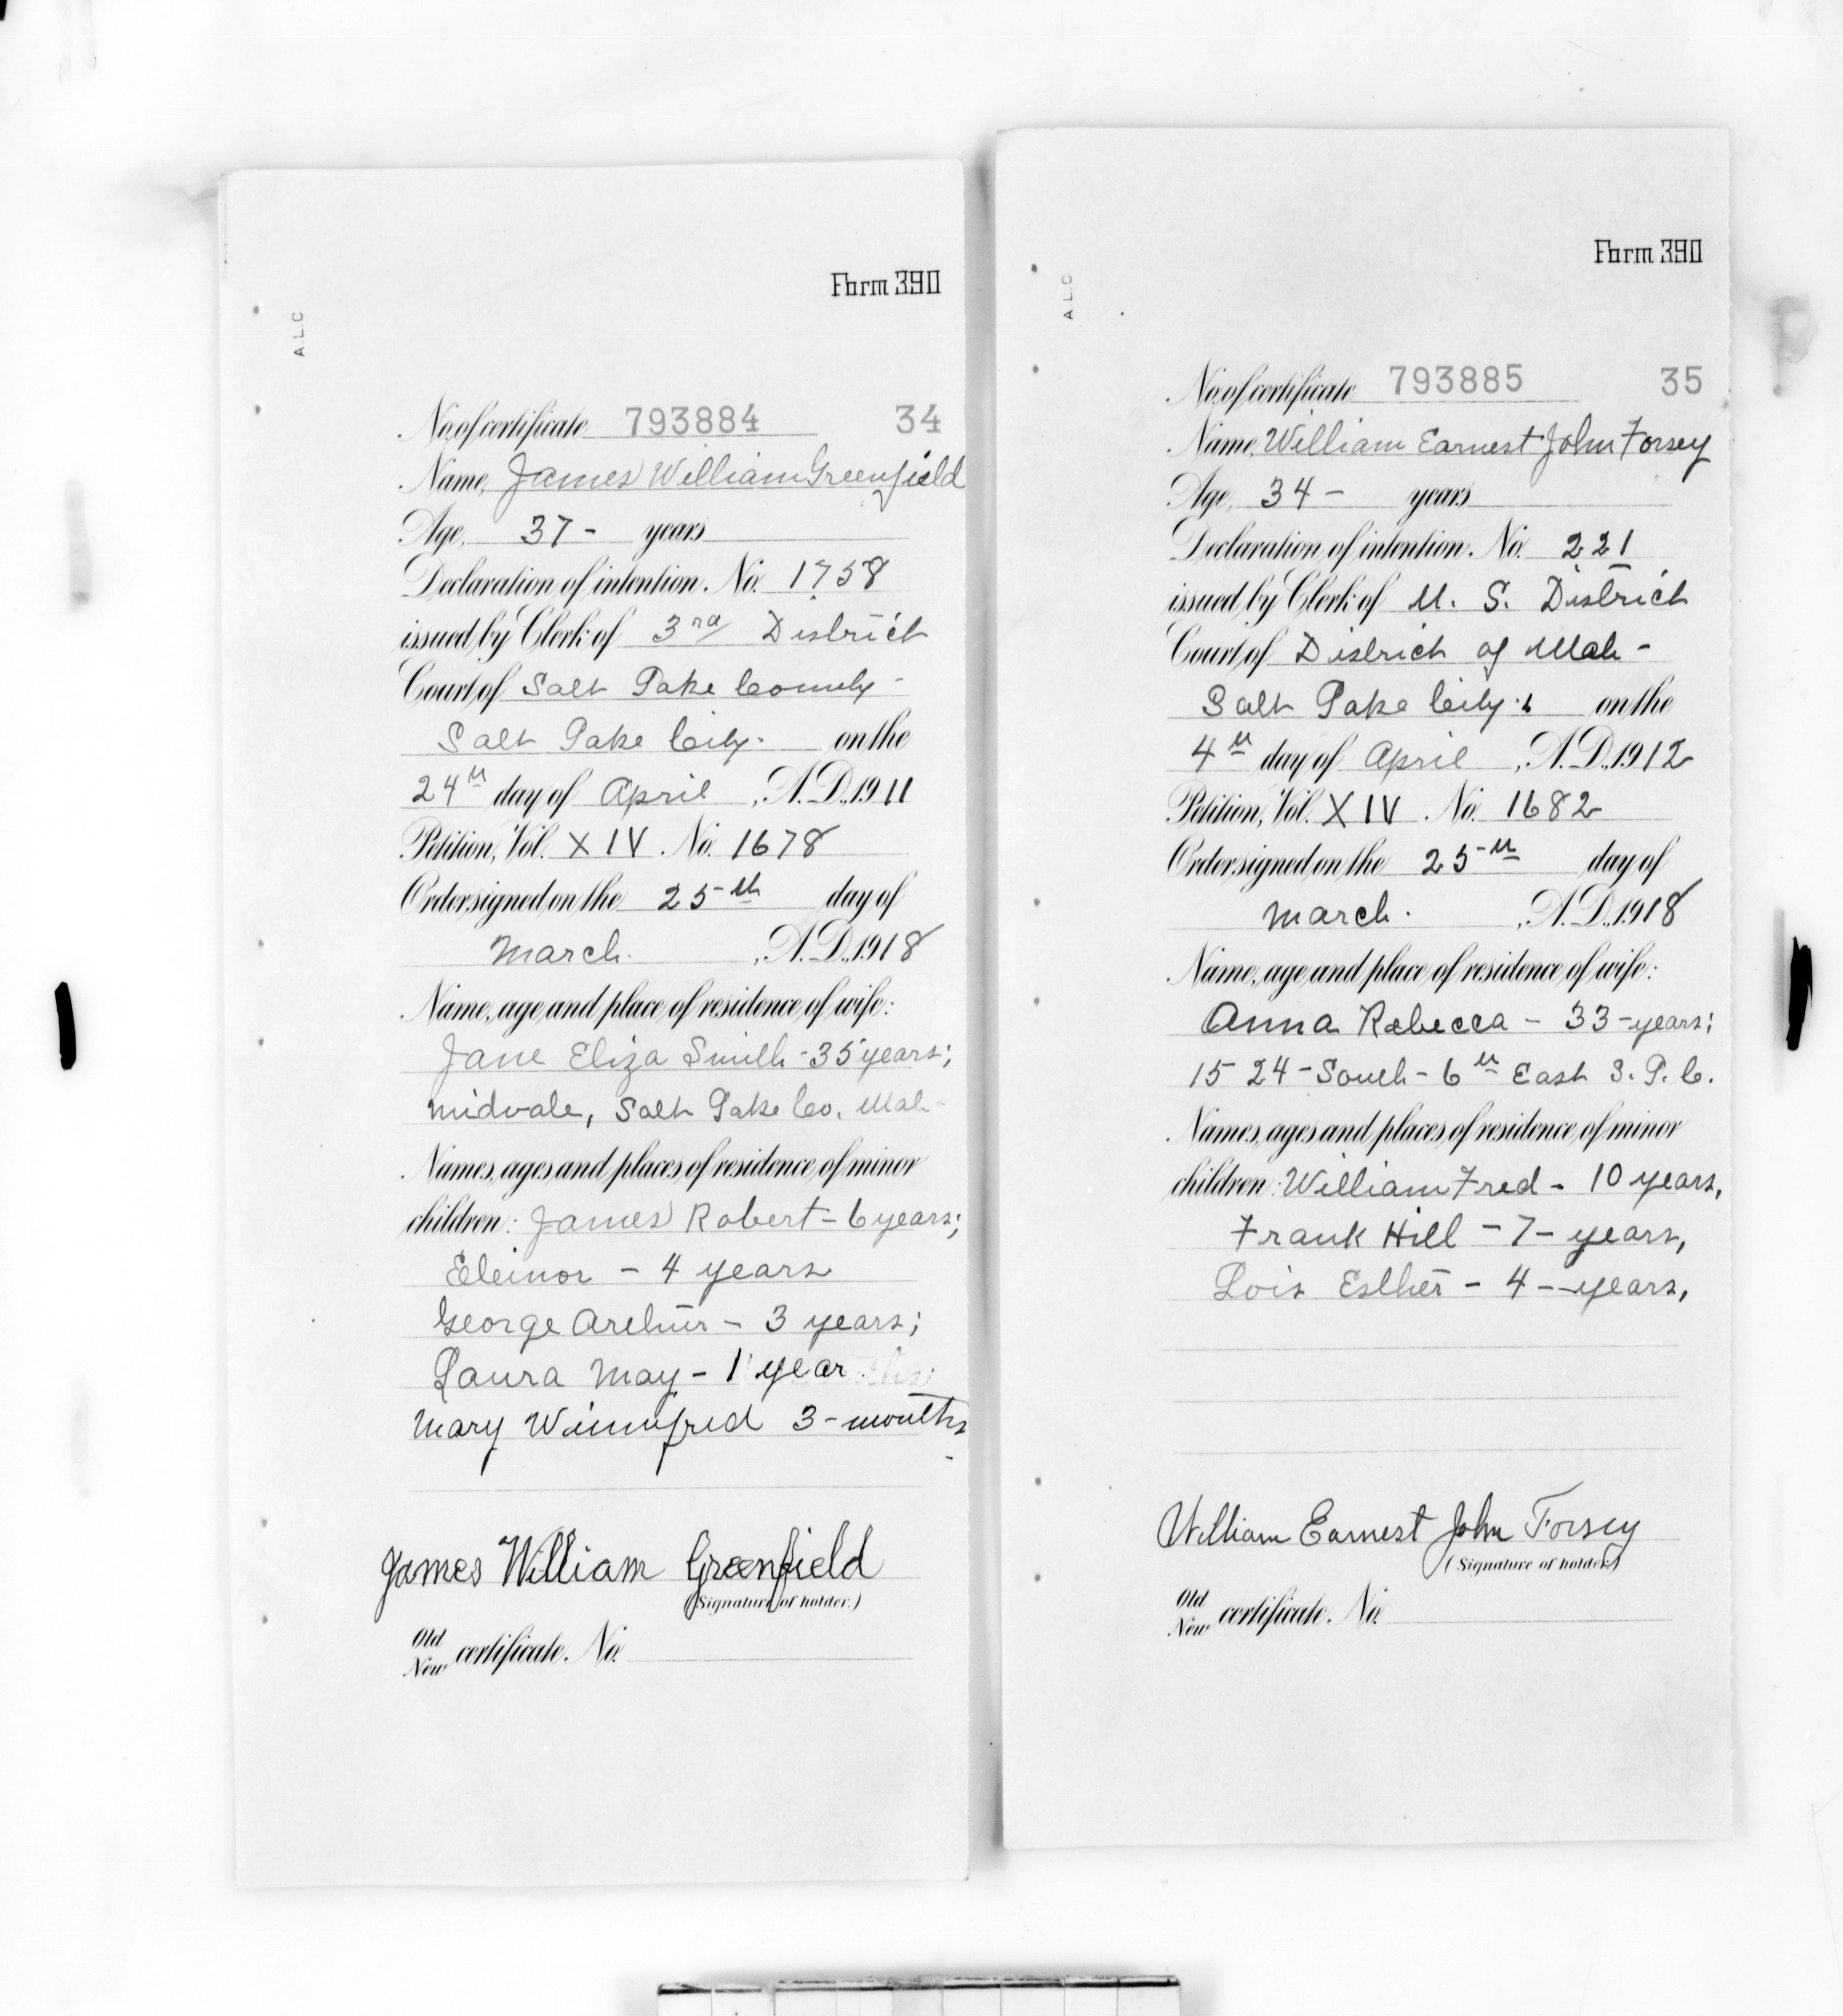 Form 390
A.L.C
No. of certificate 793884 34
Name, James William Greenfield
Age, 37 - years
Declaration of intention. No. 1758
issued by Clerk of 3rd District
Court of Salt Lake County -
Salt Lake City. on the
24th day of April , A.D. 1911
Petition, Vol. XIV. No. 1678
Order signed on the 25-th day of
March. , A.D. 1918
Name, age and place of residence of wife:
Jane Eliza Smith - 35 years;
Midvale, Salt Lake Co. Utah -
Names, ages and places of residence of minor
children: James Robert - 6 years;
Eleinor - 4 years
George Arthur - 3 years;
Laura May - 1 year
Mary Winnifred 3 - months
James William Greenfield
(Signature of holder.)
Old
New certificate. No.
Form 390
A.L.C
No. of certificate 793885 35
Name, William Earnest John Forsey
Age, 34 - years
Declaration of intention. No. 221
issued by Clerk of U. S. District
Court of District of Utah -
Salt Lake City. on the
4th day of April , A.D. 1912
Petition, Vol. XIV. No. 1682
Order signed on the 25-th day of
March. , A.D. 1918
Name, age and place of residence of wife:
Anna Rebecca - 33 - years;
1524 - South - 6th East S. L. C.
Names, ages and places of residence of minor
children: William Fred - 10 years,
Frank Hill - 7 - years,
Lois Esther - 4 - years,
William Earnest John Forsey
(Signature of holder.)
Old
New certificate. No.